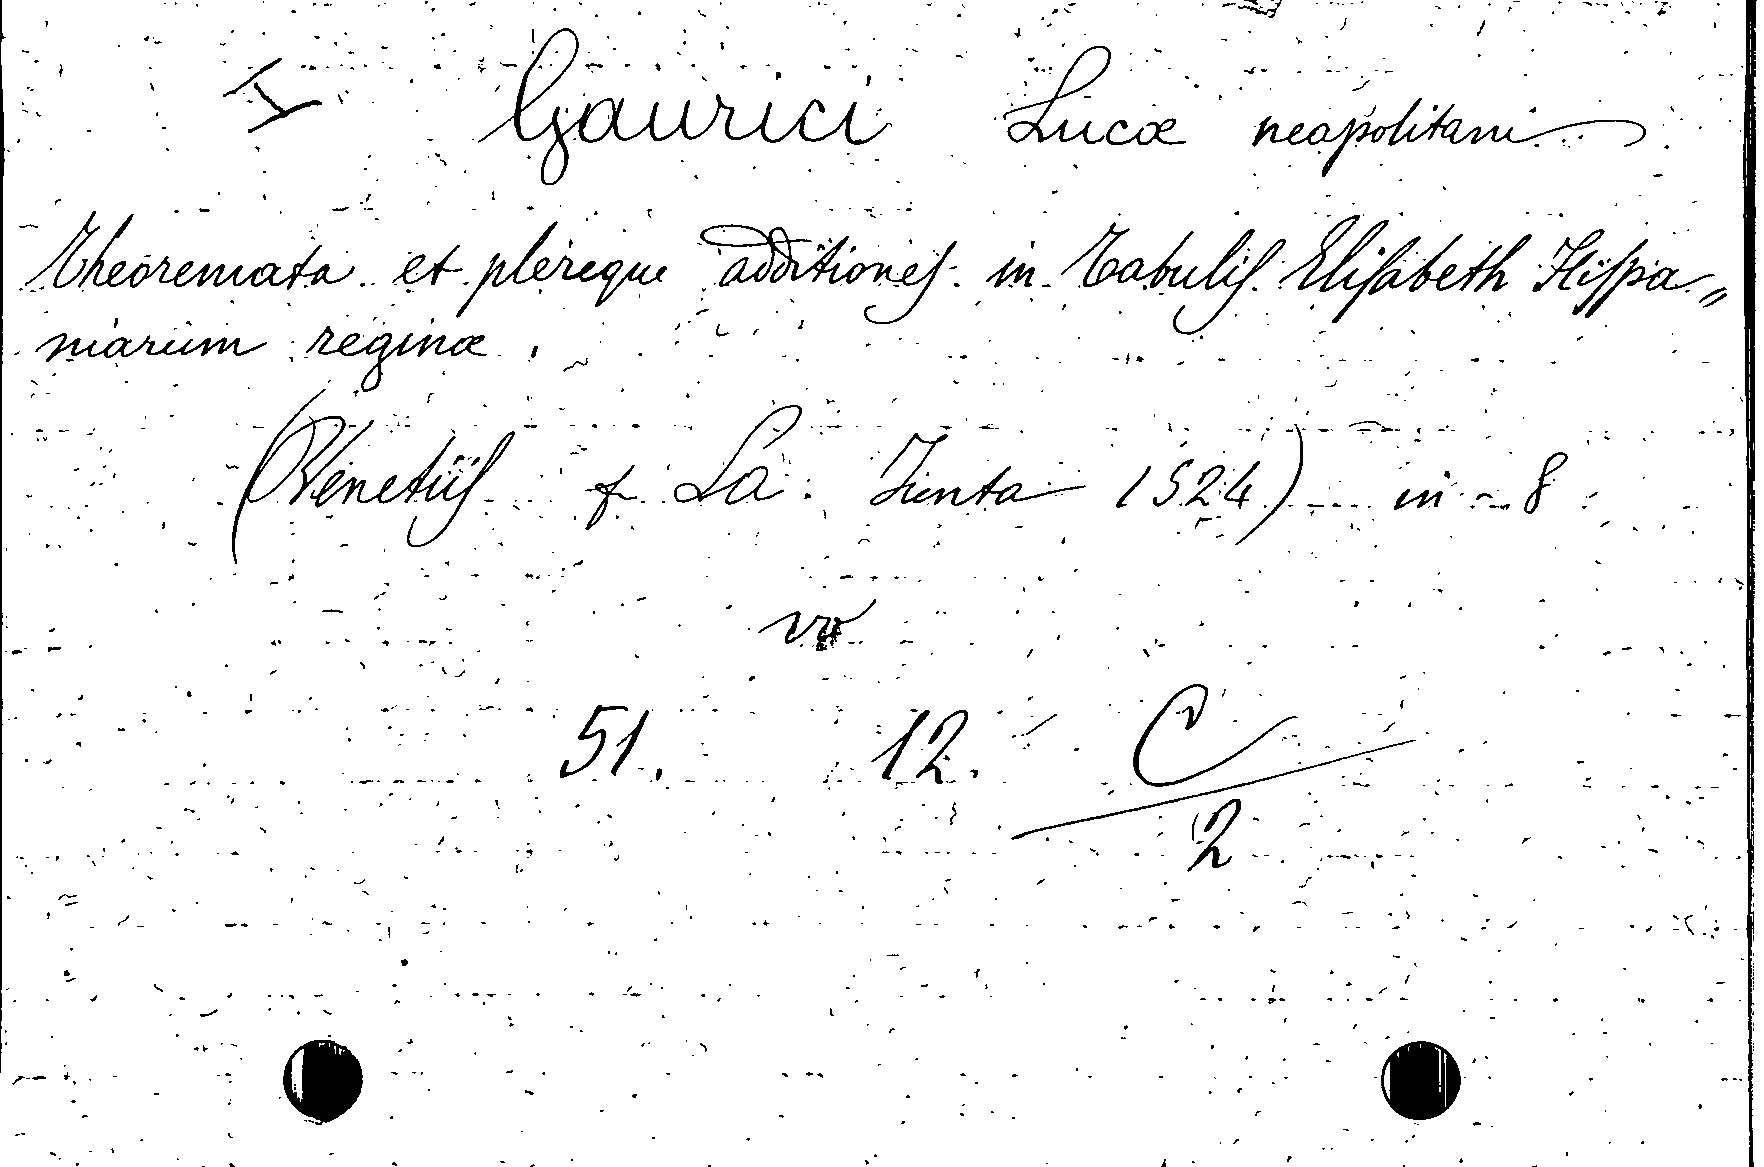 I Gaurici Lucæ neapolitani
Theoremata et plereque additiones in Tabulis Elisabeth Hispa„
niarum reginæ.
(Venetiis f La. Iunta 1524) in-8
vo
51. 12. C
2